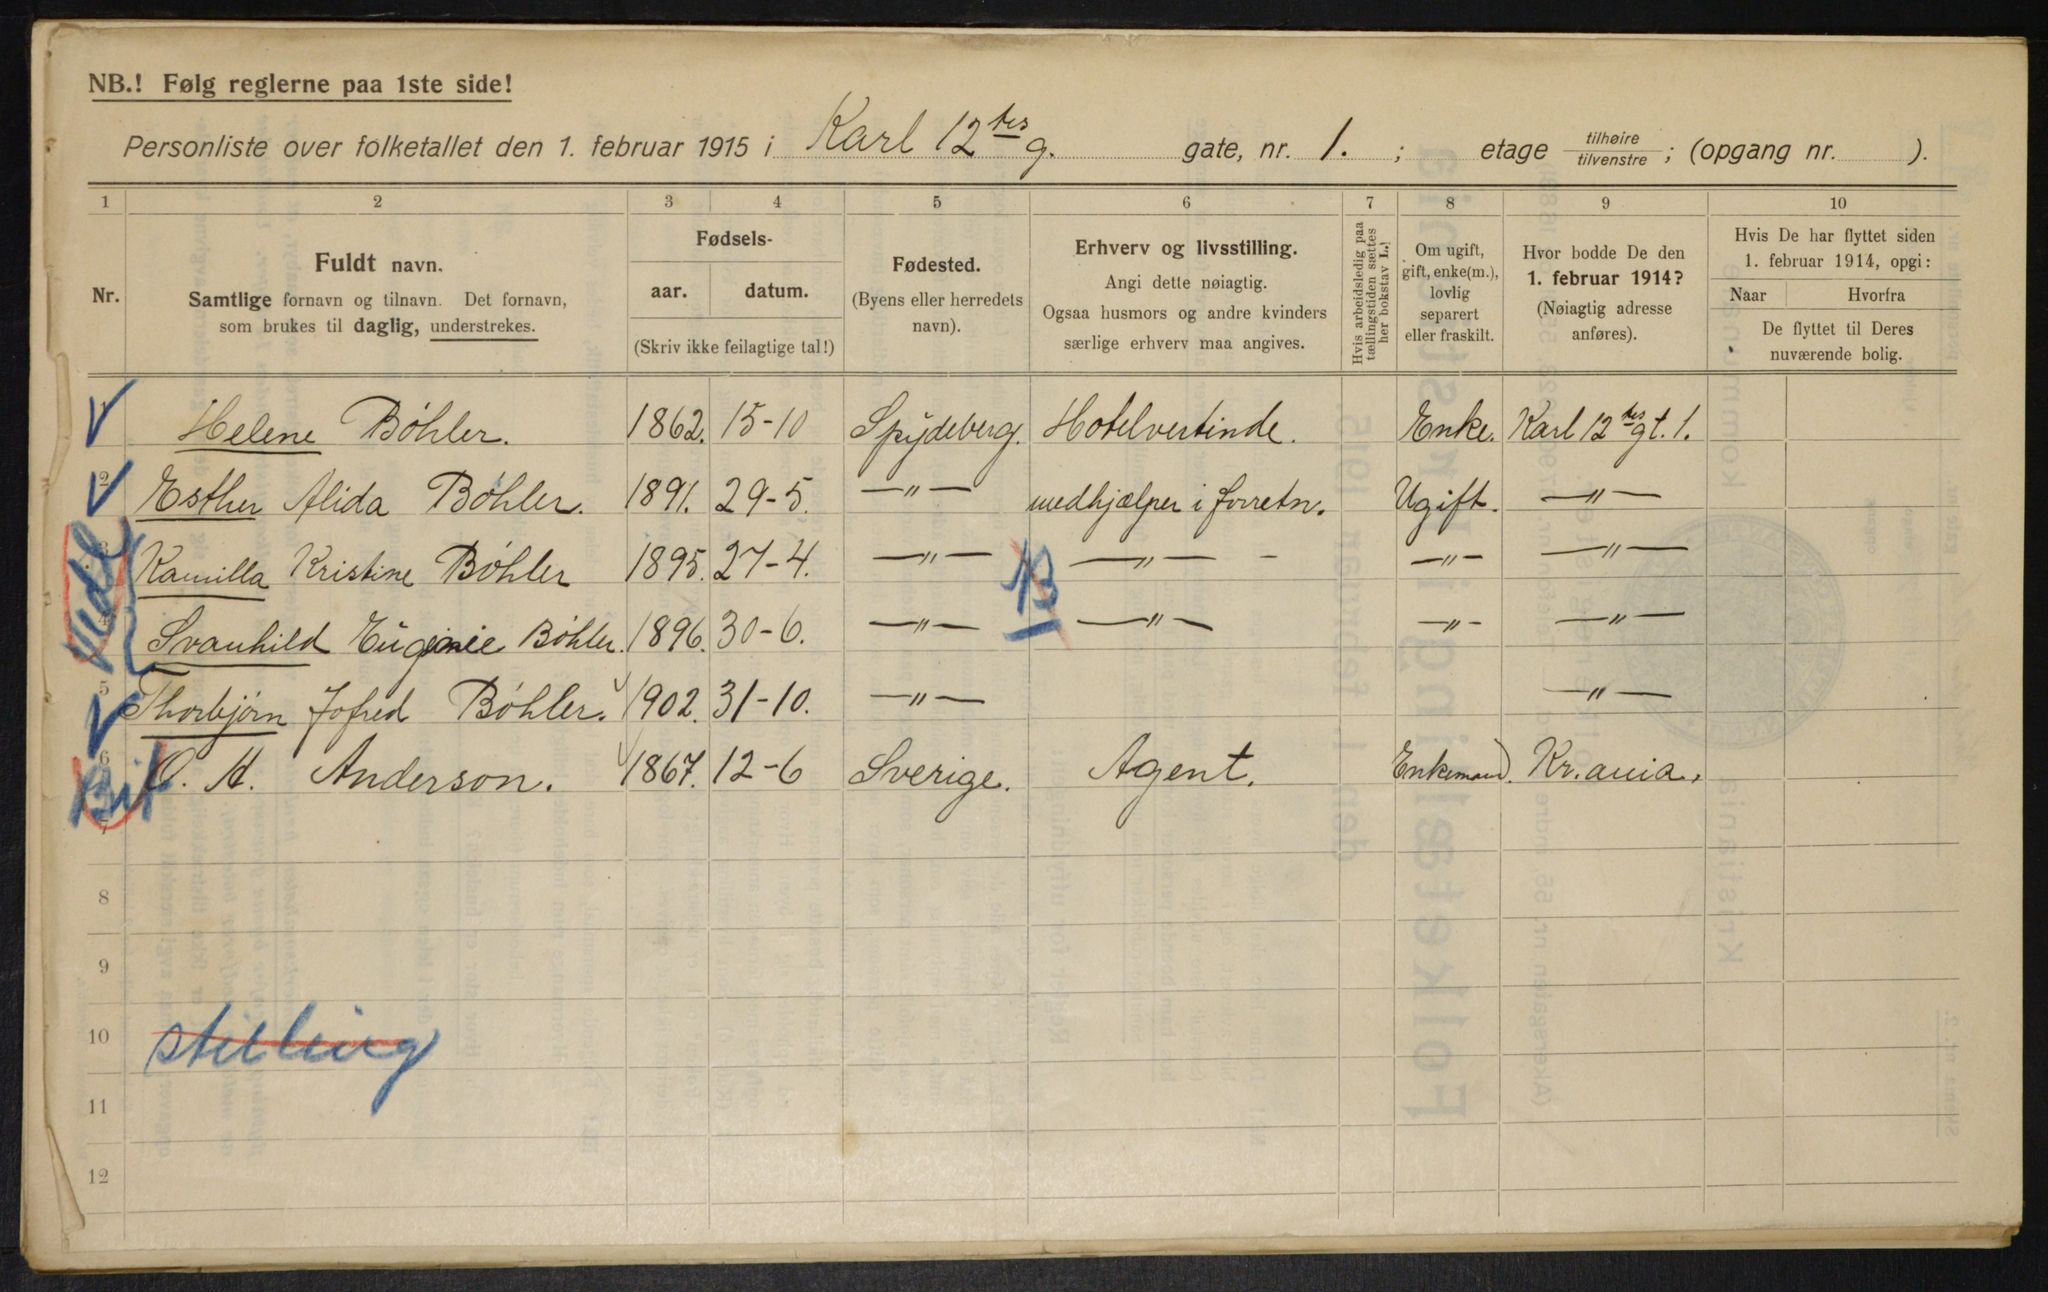 NB.! Følg reglerne paa 1ste side!
Personliste over folketallet den 1. februar 1915 i Karl 12tes g. gate, nr. 1. ; etage tilhøire tilvenstre ; (opgang nr. ).
1 2 3 4 5 6 7 8 9 10
Nr.
Fuldt navn.
Samtlige fornavn og tilnavn. Det fornavn,
som brukes til daglig, understrekes.
Fødsels-
aar. datum.
(Skriv ikke feilagtige tal!)
Fødested.
(Byens eller herredets
navn).
Erhverv og livsstilling.
Angi dette nøiagtig.
Ogsaa husmors og andre kvinders
særlige erhverv maa angives.
Hvis arbeidsledig paa
tællingstiden sættes
her bokstav L.!
Om ugift,
gift, enke(m.),
lovlig
separert
eller fraskilt.
Hvor bodde De den
1. februar 1914?
(Nøiagtig adresse
anføres).
Hvis De har flyttet siden
1. februar 1914, opgi:
Naar Hvorfra
De flyttet til Deres
nuværende bolig.
1 Helene Bøhler. 1862. 15-10 Spydeberg. Hotelvertinde. Enke. Karl 12tes gt. 1.
2 Esther Alida Bøhler. 1891. 29-5. —"— medhjælper i forretn. Ugift. —"—
3 Kamilla Kristine Bøhler 1895. 27-4. —"— —"— - —"— —"—
4 Svanhild Eugenie Bøhler. 1896. 30-6. —"— —"— —"— —"—
5 Thorbjørn Jofred Bøhler. 1902. 31-10. —"— —"—
6 O. A. Anderson. 1867. 12-6 Sverige. Agent. Enkemand. Kr.ania.
7
8
9
10 stilling
11
12